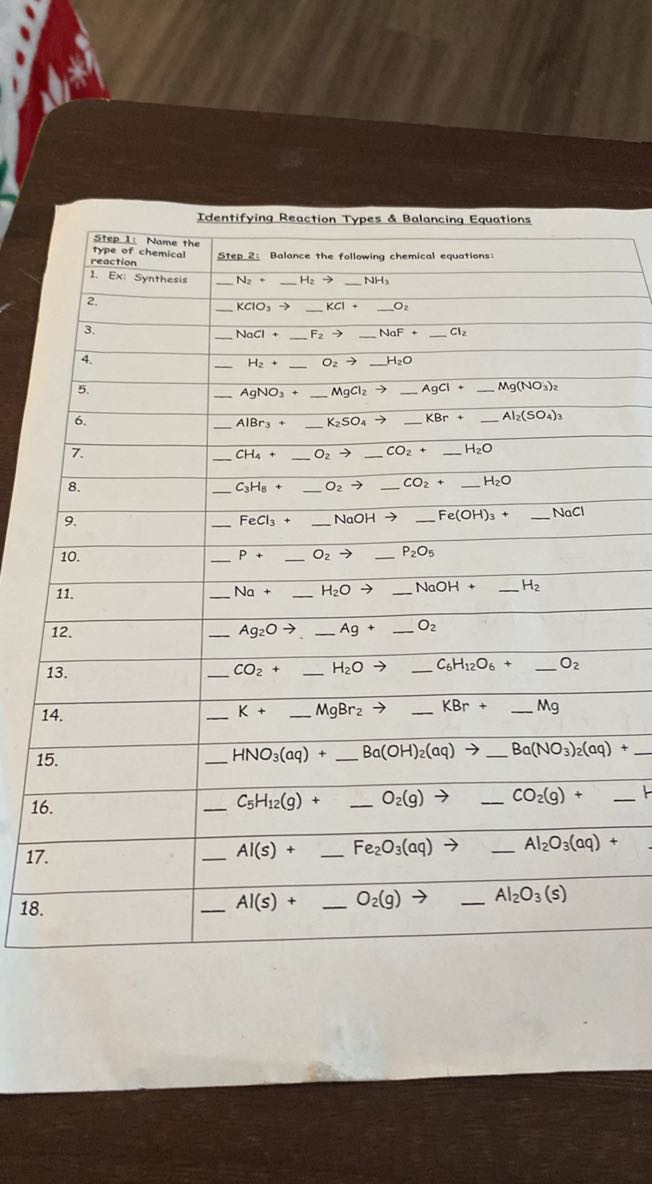 Identifying Reaction Types & Balancing Equations
Step 1: Name the type of chemical reaction
Step 2: Balance the following chemical equations:
1. Ex: Synthesis __ N₂ + __ H₂ → __ NH₃
2. __ KClO₃ → __ KCl + __ O₂
3. __ NaCl + __ F₂ → __ NaF + __ Cl₂
4. __ H₂ + __ O₂ → __ H₂O
5. __ AgNO₃ + __ MgCl₂ → __ AgCl + __ Mg(NO₃)₂
6. __ AlBr₃ + __ K₂SO₄ → __ KBr + __ Al₂(SO₄)₃
7. __ CH₄ + __ O₂ → __ CO₂ + __ H₂O
8. __ C₃H₈ + __ O₂ → __ CO₂ + __ H₂O
9. __ FeCl₃ + __ NaOH → __ Fe(OH)₃ + __ NaCl
10. __ P + __ O₂ → __ P₂O₅
11. __ Na + __ H₂O → __ NaOH + __ H₂
12. __ Ag₂O → __ Ag + __ O₂
13. __ CO₂ + __ H₂O → __ C₆H₁₂O₆ + __ O₂
14. __ K + __ MgBr₂ → __ KBr + __ Mg
15. __ HNO₃(aq) + __ Ba(OH)₂(aq) → __ Ba(NO₃)₂(aq) + __
16. __ C₅H₁₂(g) + __ O₂(g) → __ CO₂(g) + __
17. __ Al(s) + __ Fe₂O₃(aq) → __ Al₂O₃(aq) +
18. __ Al(s) + __ O₂(g) → __ Al₂O₃(s)